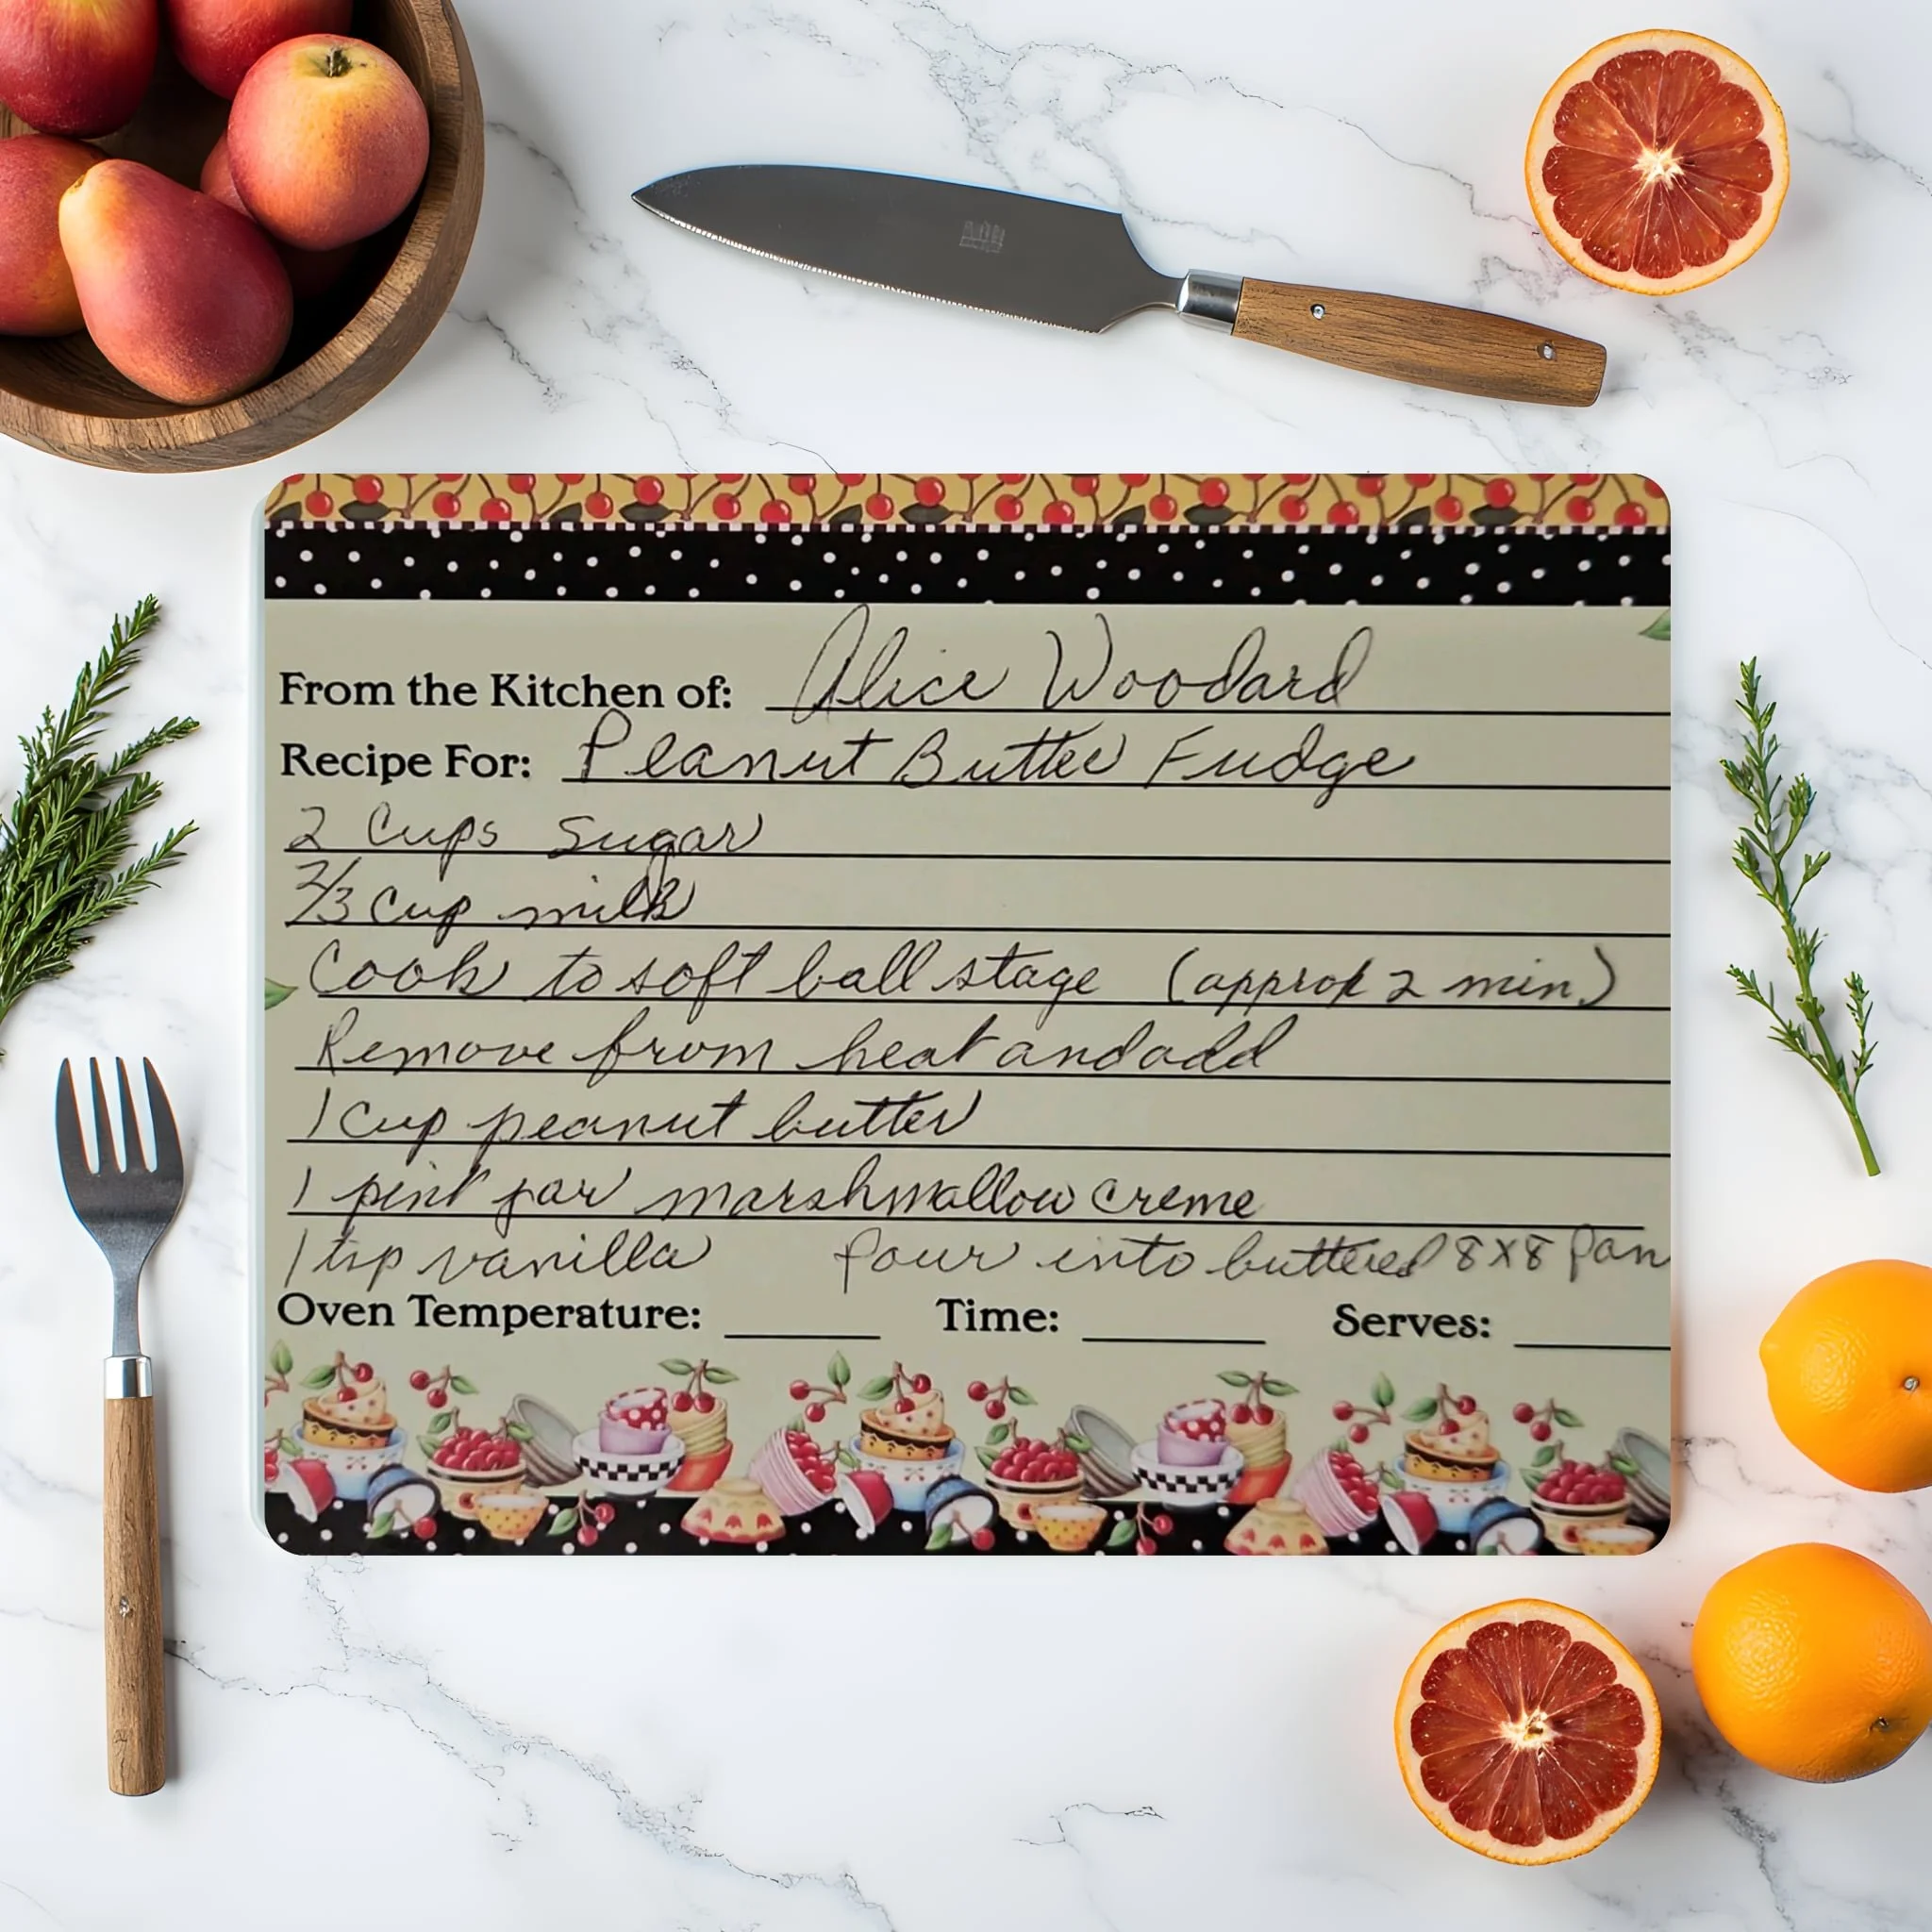 From the Kitchen of: Alice Woodard
Recipe For: Peanut Butter Fudge
2 Cups Sugar
2/3 Cup milk
Cook to soft ball stage (approx 2 min)
Remove from heat and add
1 Cup peanut butter
1 pint jar marshmallow creme
1 tsp vanilla pour into buttered 8x8 Pan
Oven Temperature: Time: Serves: